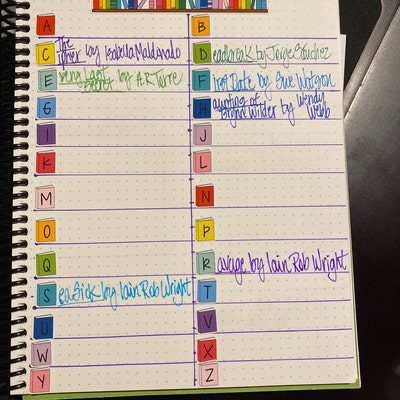 A
B
C The Cipher by Isabella Maldonado
D eadbreak by Jorge Sanchez
E very Last Secret by A.R. Torre
F irst Date by Sue Watson
G
H aunting of Brynn Wilder by Wendy Webb
I
J
K
L
M
N
O
P
Q
R avage by Iain Rob Wright
S ea Sick by Iain Rob Wright
T
U
V
W
X
Y
Z